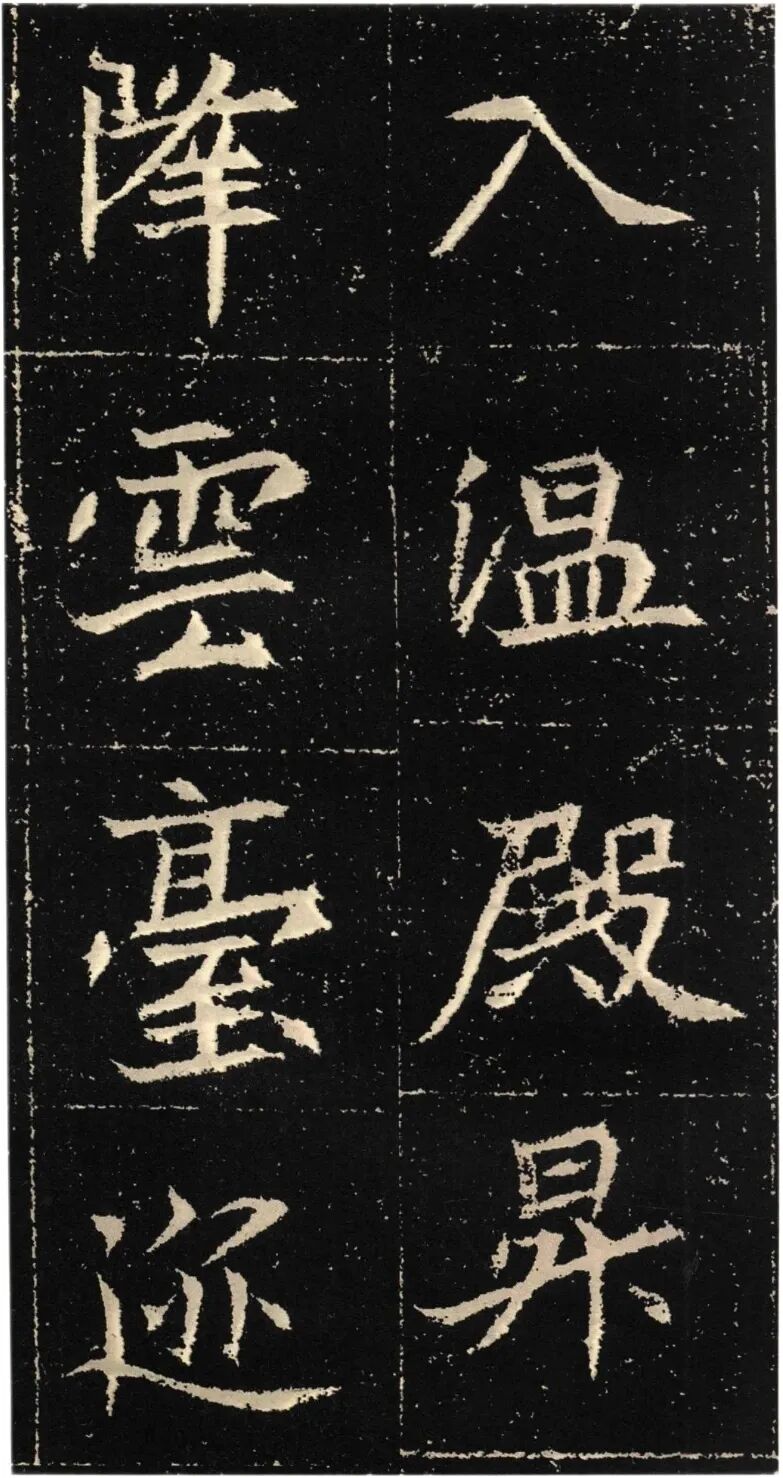 入温殿昇
降雲臺迹